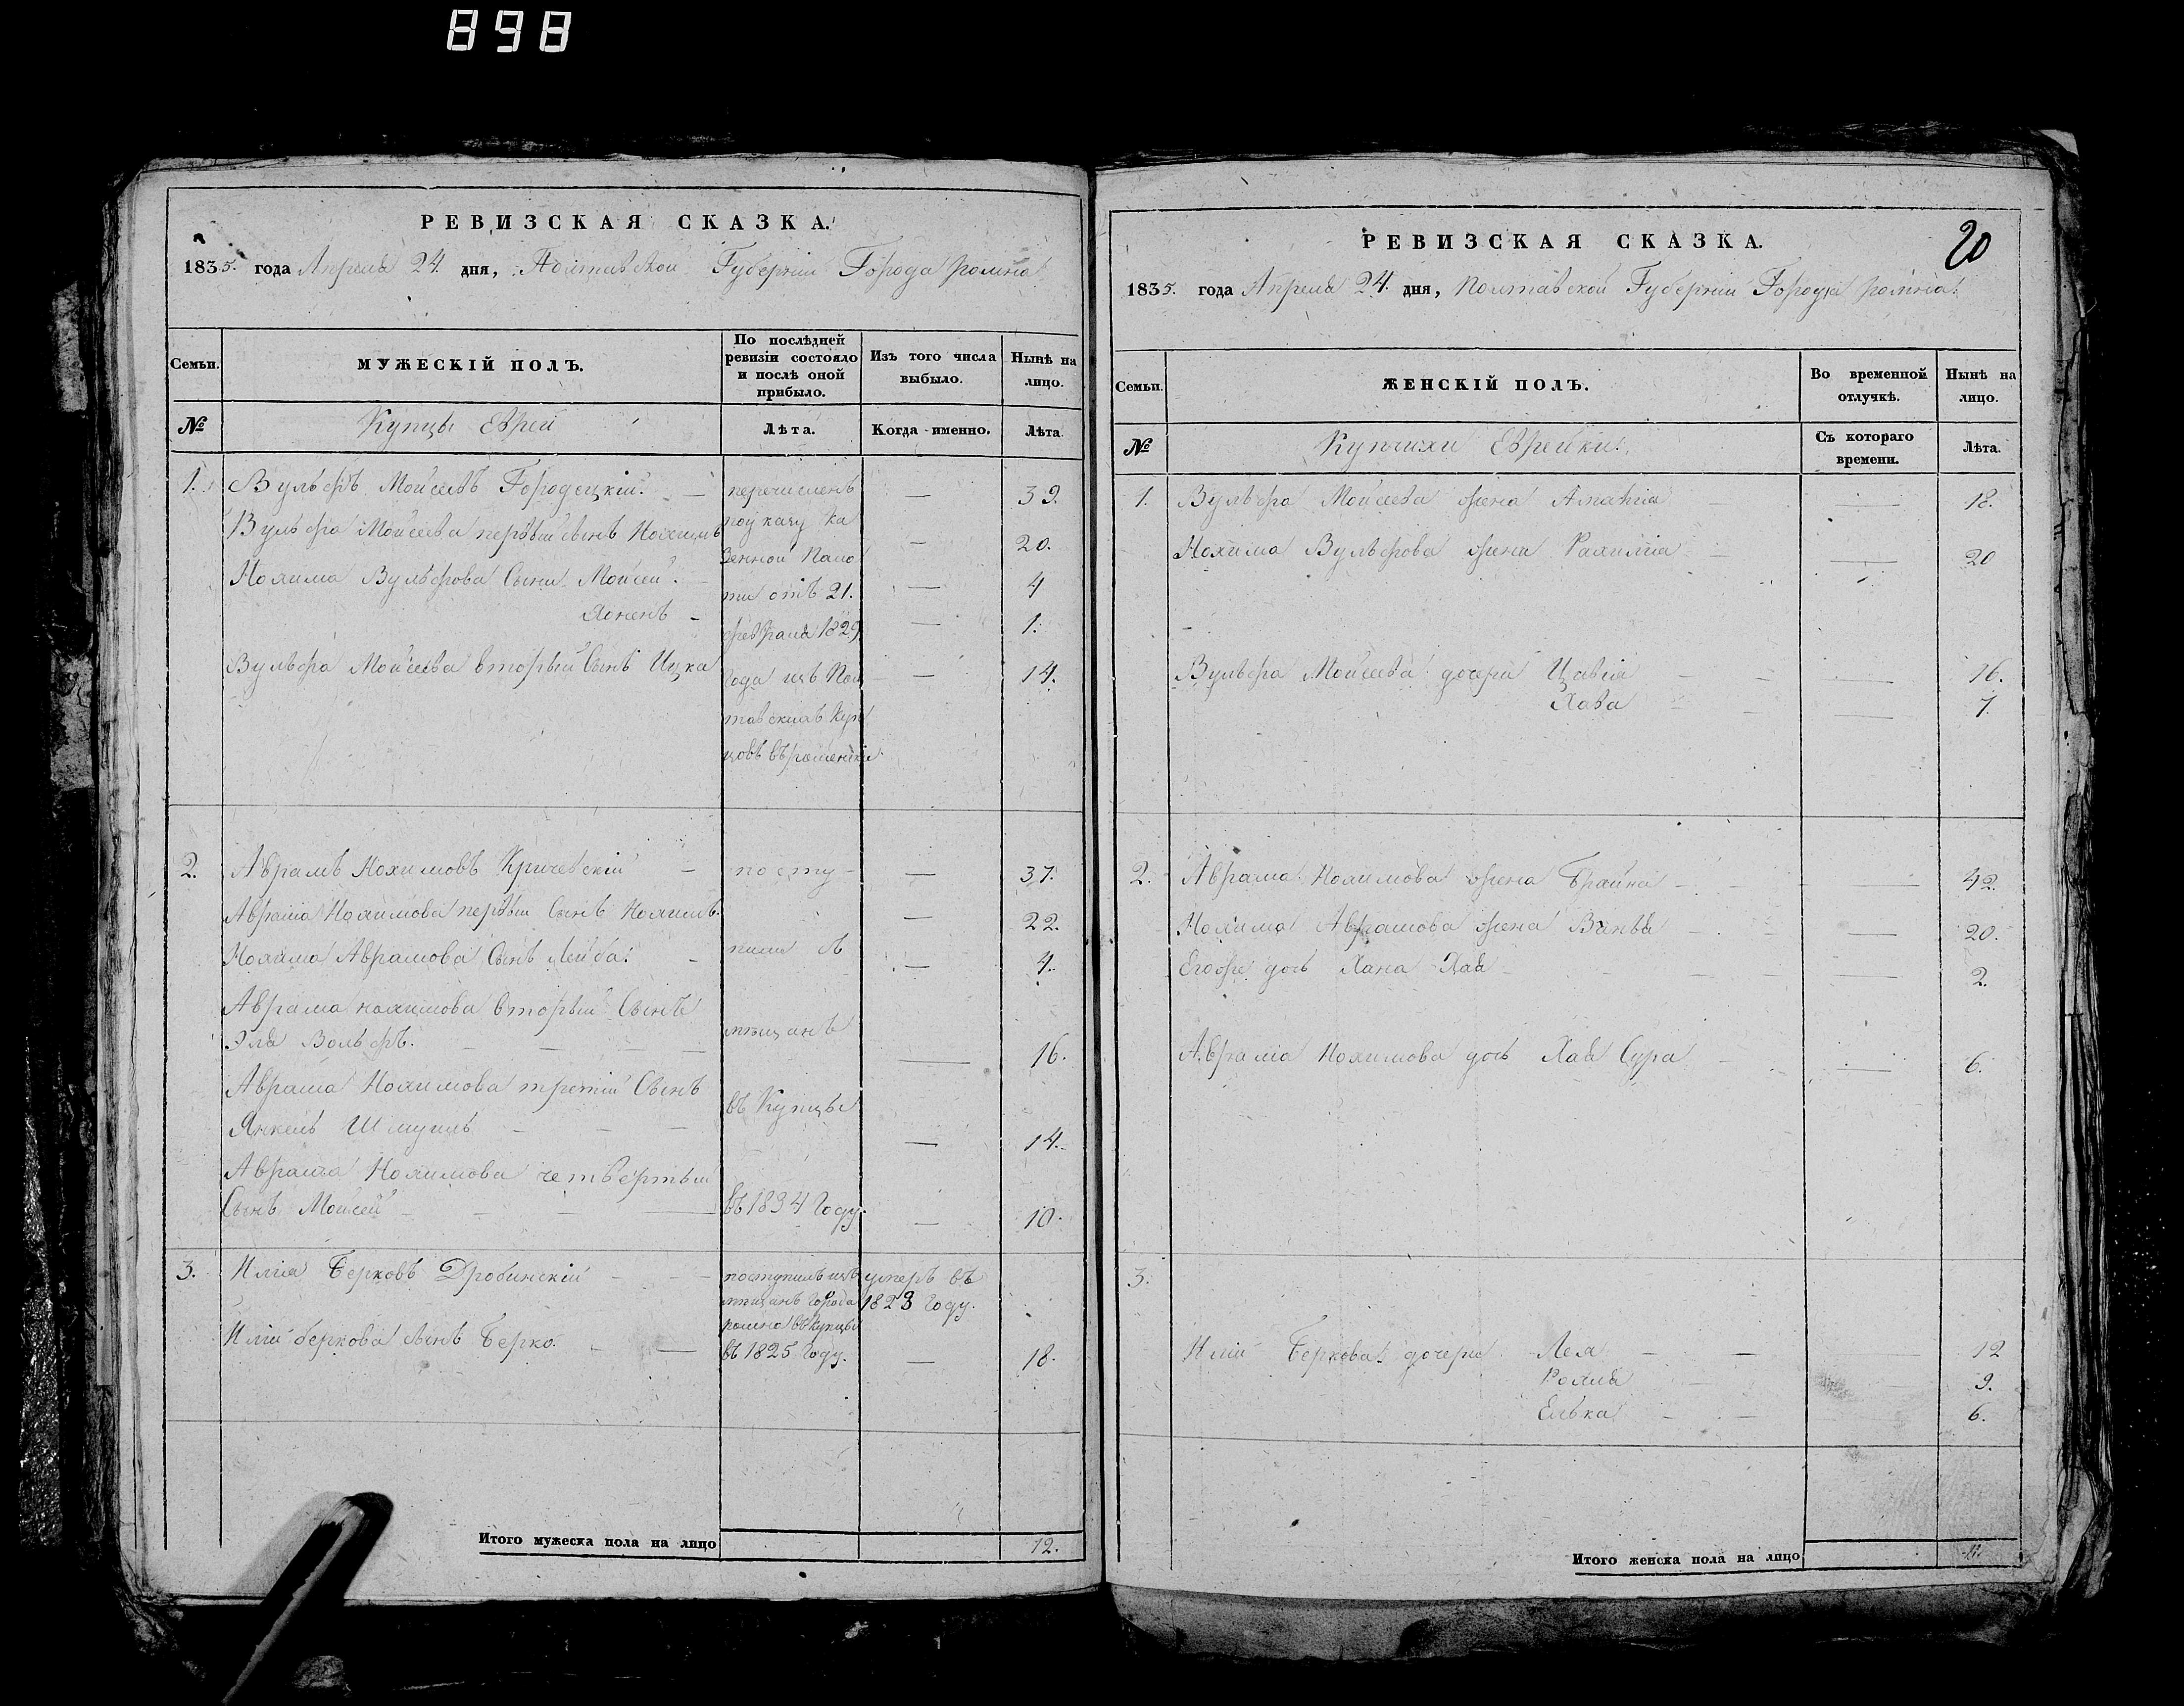 898
РЕВИЗСКАЯ СКАЗКА.
1835. года Апреля 24. дня, Полтавской Губерніи Города ромна
Семьи.
МУЖЕСКІЙ ПОЛЪ.
По послѣдней ревизіи состояло и послѣ оной прибыло.
Изъ того числа выбыло.
Нынѣ на лицо.
№
Купцы Еврей
Лѣта.
Когда именно.
Лѣта.
1. Вульфъ Мойсеевъ Городецкій. — перечисленъ — 39.
Вульфа Мойсеева первый сынъ Нохимъ поуказу Ка — 20.
Нохима Вульфова Сыны Мойсей. зенной Пала — 4
ты отъ 21. — 1.
февраля 1829
Вульфа Мойсеева вторый Сынъ Ицка года изъ Пол — 14.
тавскихъ Куп
цовъ въ роменскіи
2. Аврамъ Нохимовъ Кричевскій — посту — 37.
Аврама Нохимова первый Сынъ Нохимъ. — 22.
Нохима Аврамова Сынъ Лейба. — 4.
Аврама нохимова вторый Сынъ
Эля Вольфъ. мѣщанъ — 16.
Аврама Нохимова третій Сынъ
Янкель Шмуиль въ Купцы — 14.
Аврама Нохимова четвертый
Сынъ Мойсей — въ 1834 Году. — 10.
3. Илія Берковъ Дробинскій — поступилъ изъ умеръ въ
мѣщанъ города 1828 году.
ромна въ купцы
Иліи беркова сынъ Берко. — въ 1825 Году. — 18.
Итого мужеска пола на лицо 12.
20
РЕВИЗСКАЯ СКАЗКА.
1835. года Апреля 24. дня, Полтавской Губерніи Города ромна.
Семьи.
ЖЕНСКІЙ ПОЛЪ.
Во временной отлучкѣ.
Нынѣ на лицо.
№
Купчихи Еврейки.
Съ котораго времени.
Лѣта.
1. Вульфа Мойсеева жена — 18.
Нохима Вульфова жена — 20
Вульфа Мойсеева дочери Цивія — 16.
Хава — 7.
2. Аврама Нохимова жена Брайна — 42.
Нохима Аврамова жена — 20.
Егоже дочь Хана Хая — 2.
Аврама Нохимова дочь Хая Сура — 6.
3.
Иліи Беркова дочери Лея — 12
9.
Елька — 6.
Итого женска пола на лицо